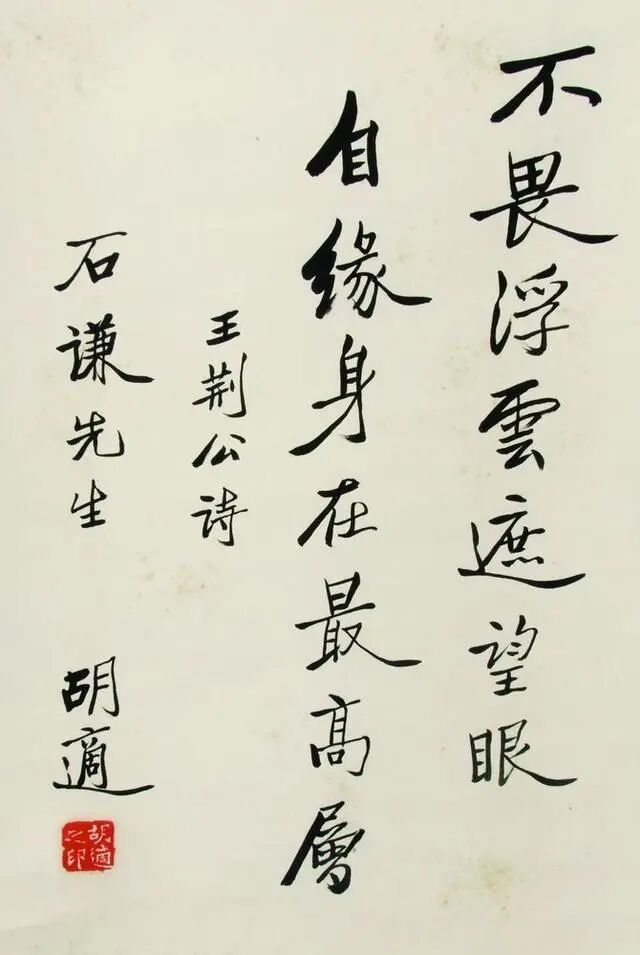 不畏浮雲遮望眼
自缘身在最高層
王荆公诗
石谦先生
胡適
胡適之印